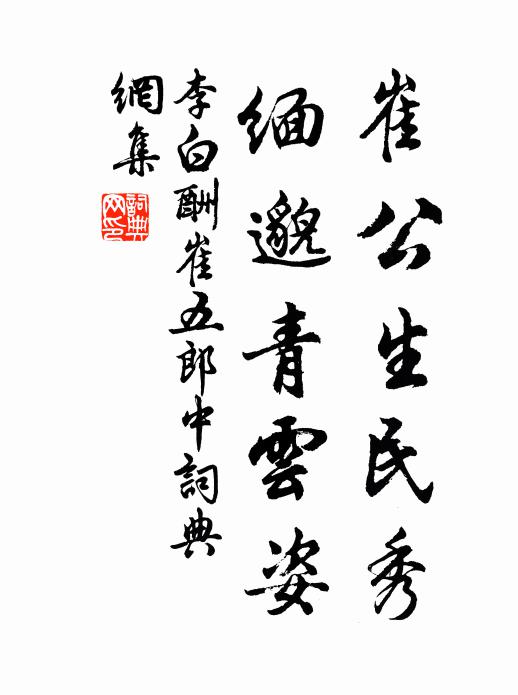 崔公生民秀
緬邈青雲姿
李白酬崔五郎中詞典
網集
詞典
网印